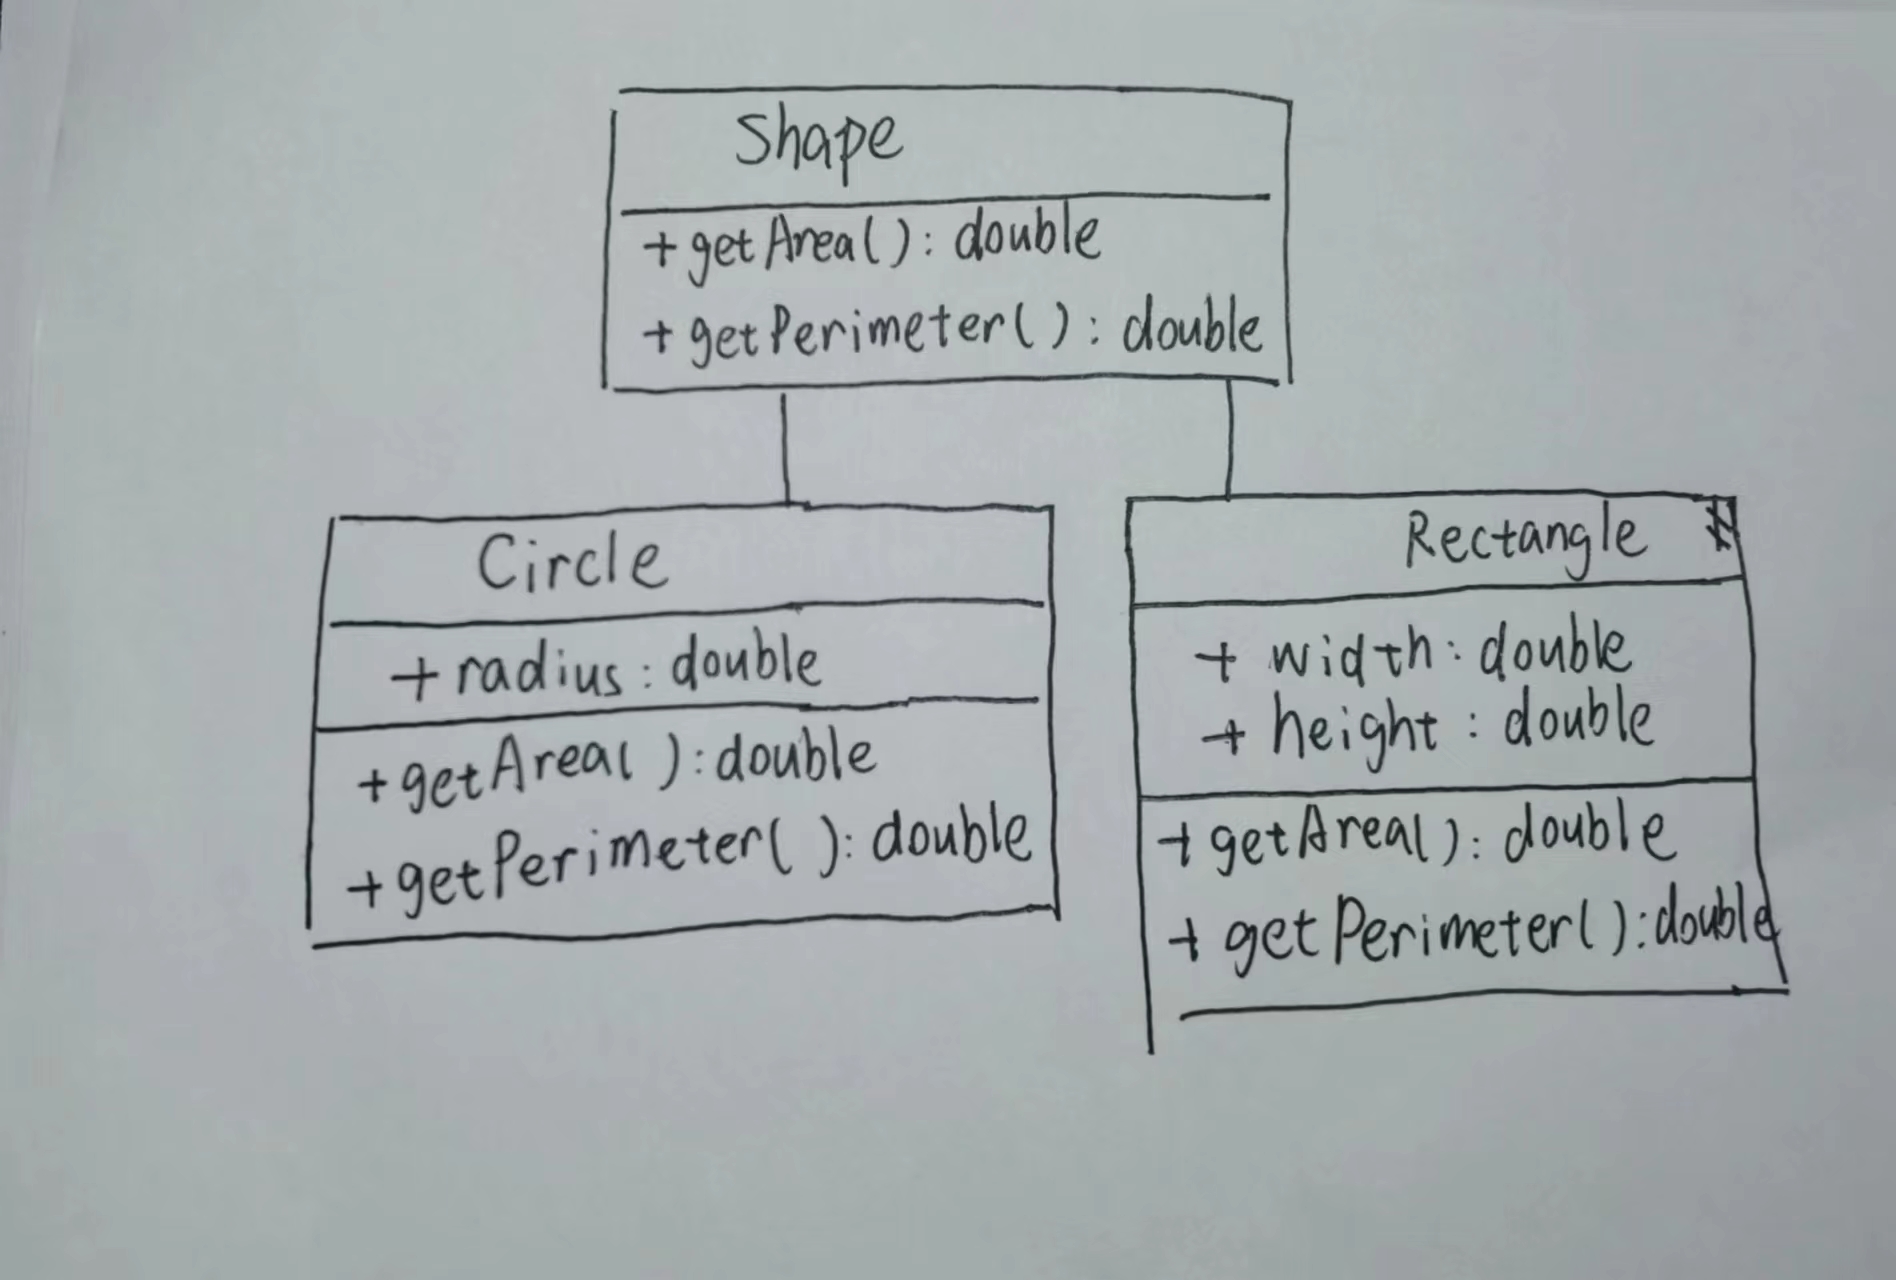 Shape
+ getArea(): double
+ getPerimeter(): double
Circle
+ radius: double
+ getArea(): double
+ getPerimeter(): double
Rectangle
+ width: double
+ height: double
+ getArea(): double
+ getPerimeter(): double